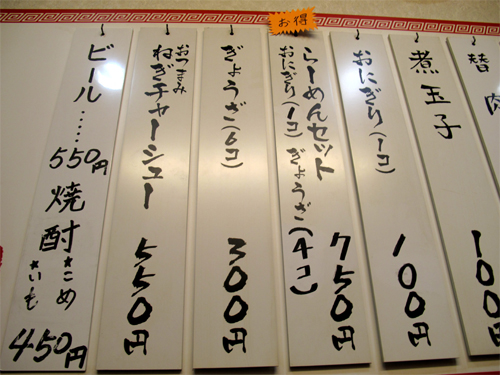 替
100
煮玉子
100円
おにぎり(1コ)
100円
お得
らーめんセット
おにぎり(1コ)ぎょうざ(4コ)
750円
ぎょうざ(6コ)
300円
おつまみ
ねぎチャーシュー
550円
ビール……
550円
焼酎
*こめ
*いも
450円